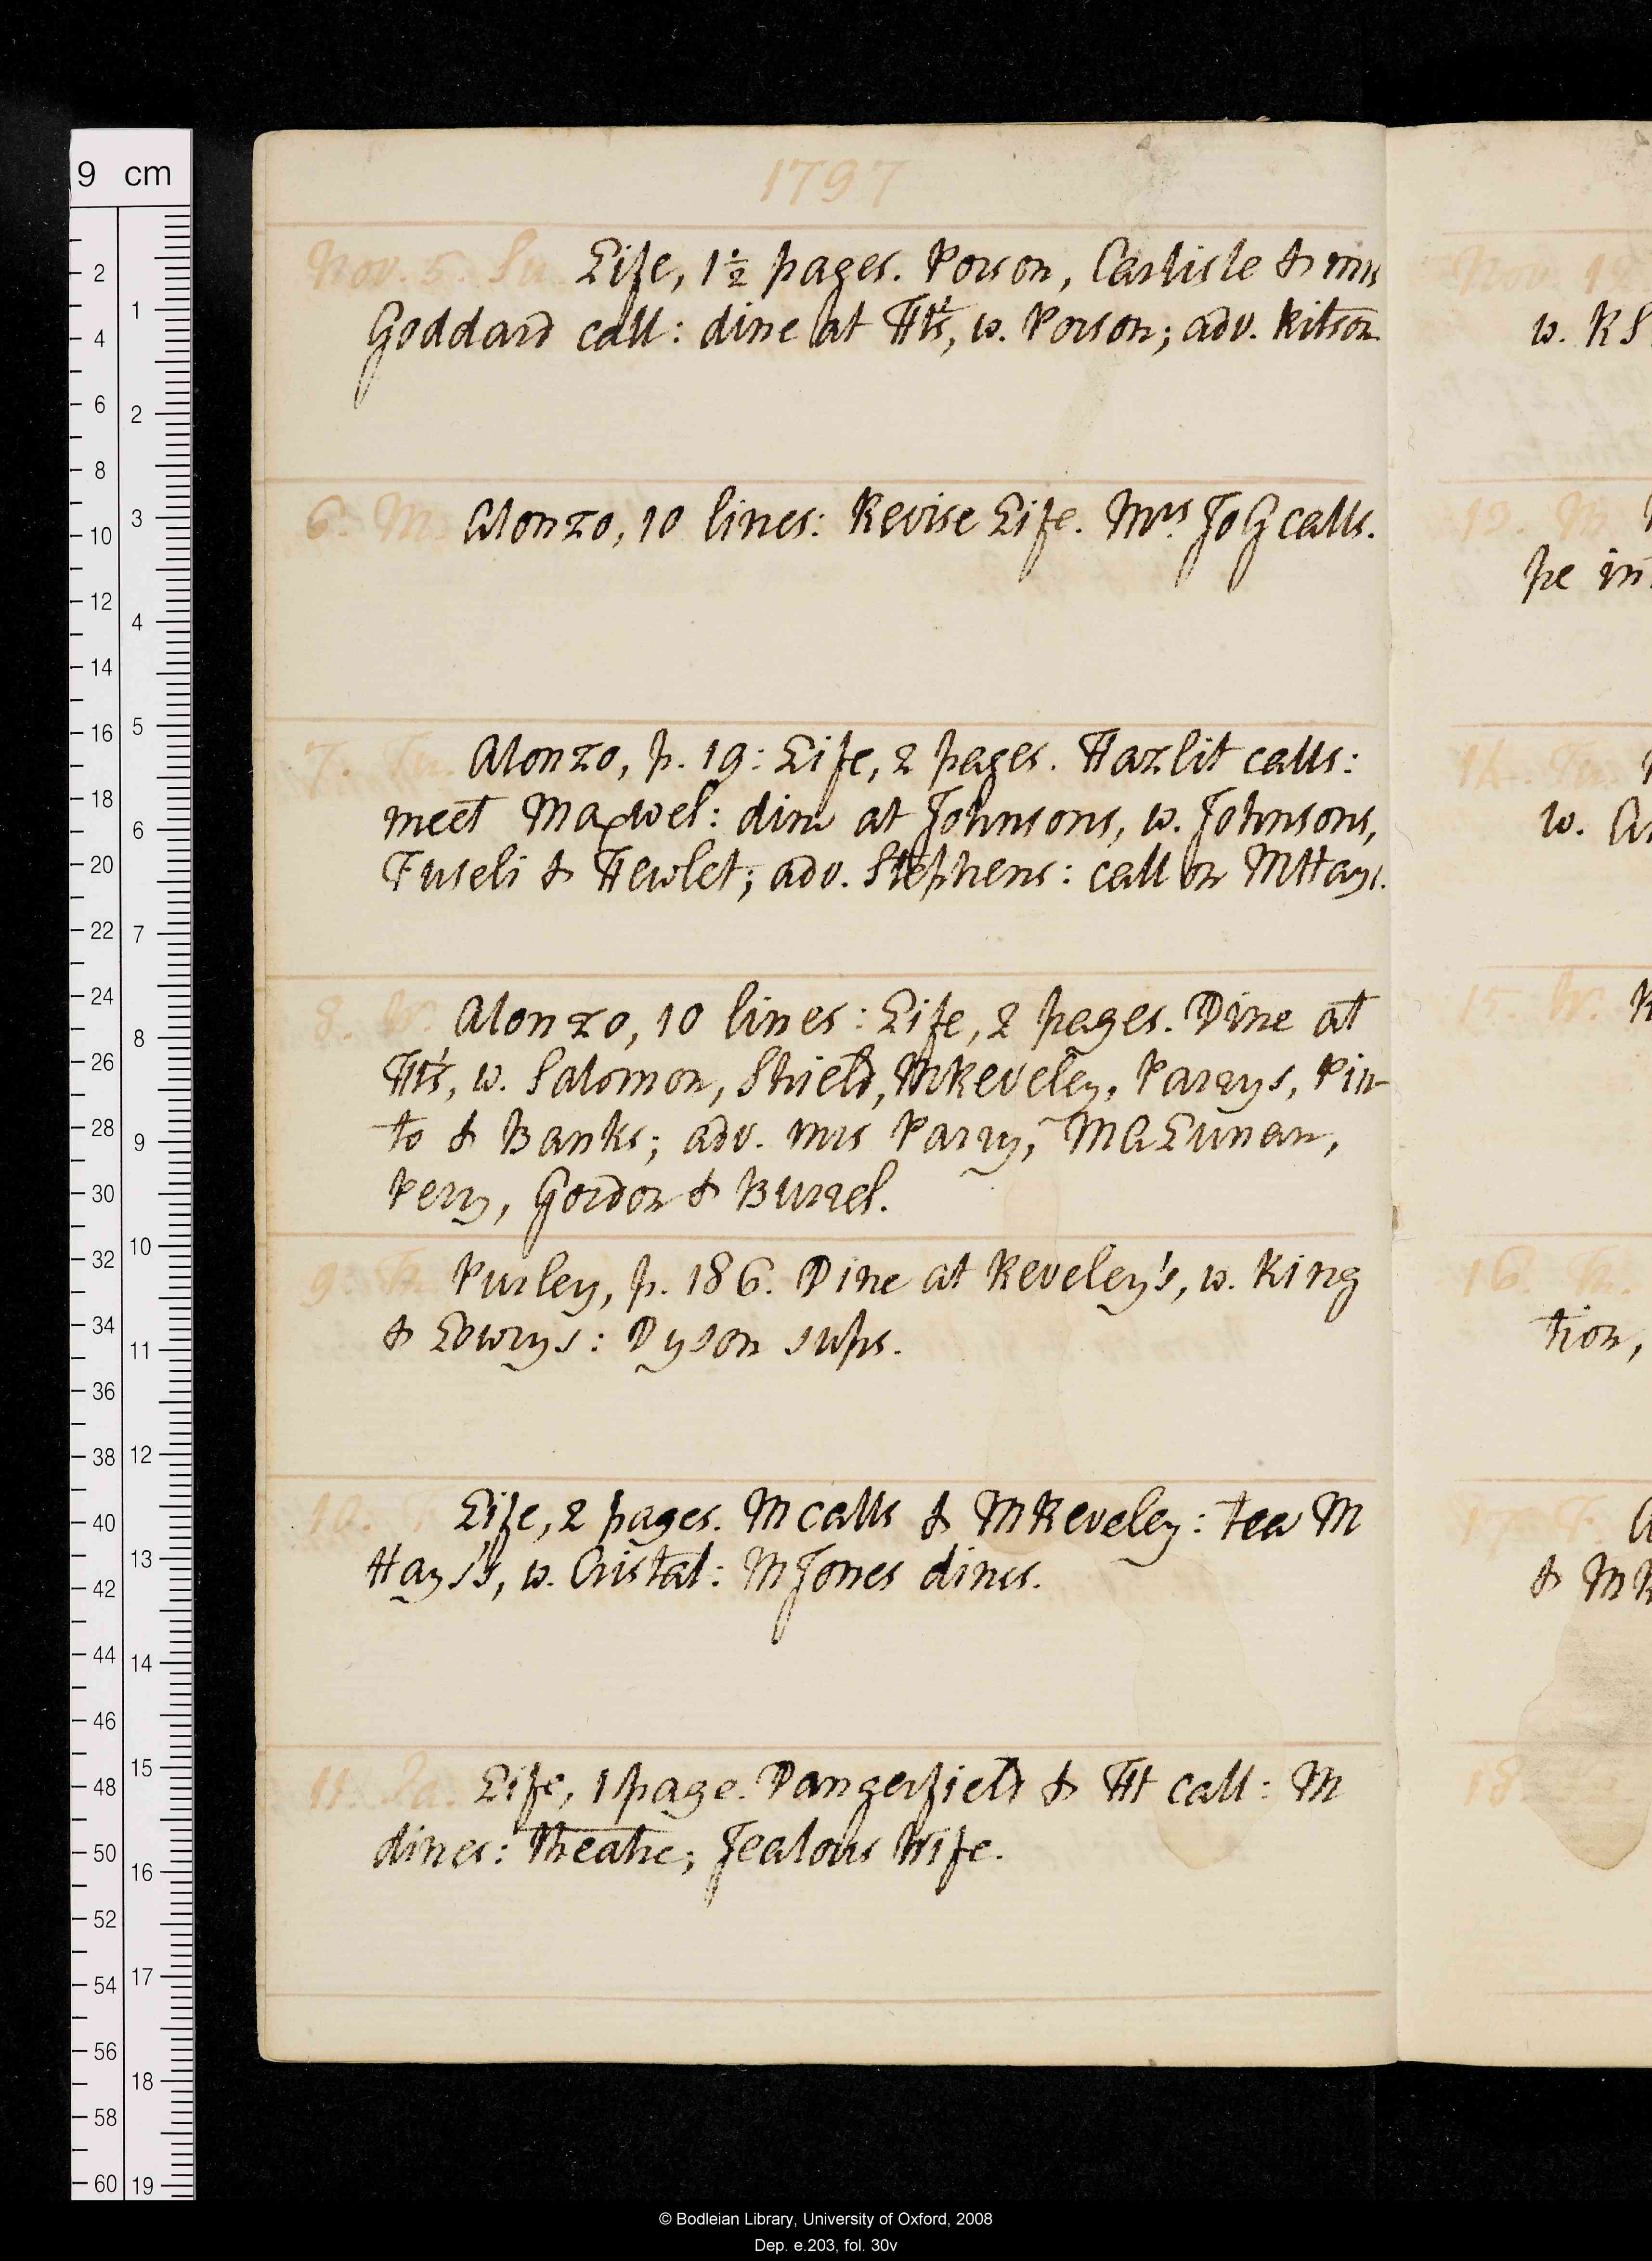 1797
Nov. 5. Su. Life, 1½ pages. Porson, Carlisle & miss
Goddard call: dine at Ht's, w. Porson; adv. Ritson.
6. M. Alonzo, 10 lines: Revise Life. Mrs. JoG calls.
7. Tu. Alonzo, p. 19: Life, 2 pages. Hazlit calls:
meet Maxwel: dine at Johnsons, w. Johnsons,
Fuseli & Hewlet; adv. Stephens: call on MHays.
8. W. Alonzo, 10 lines: Life, 2 pages. Dine at
Ht's, w. Salomon, Shield, MReveley, Parrys, Pin-
to & Banks; adv. mrs Parry, MALunan,
Perry, Gordon & Burrel.
9. Th. Purley, p. 186. Dine at Reveley's, w. King
& Lowrys: Dyson sups.
10. F. Life, 2 pages. M calls & MReveley: tea M
Hays's, w. Cristal: MJones dines.
11. Sa. Life, 1 page. Dangerfield & Ht call: M
dines: theatre; Jealous Wife.
Nov. 12
w. KS
13. M.
pe in
14. Tu.
w. A
15. W.
16. Th.
tion,
17. F.
& MR
18.
9 cm
2 4 6 8 10 12 14 16 18 20 22 24 26 28 30 32 34 36 38 40 42 44 46 48 50 52 54 56 58 60
1 2 3 4 5 6 7 8 9 10 11 12 13 14 15 16 17 18 19
© Bodleian Library, University of Oxford, 2008
Dep. e.203, fol. 30v